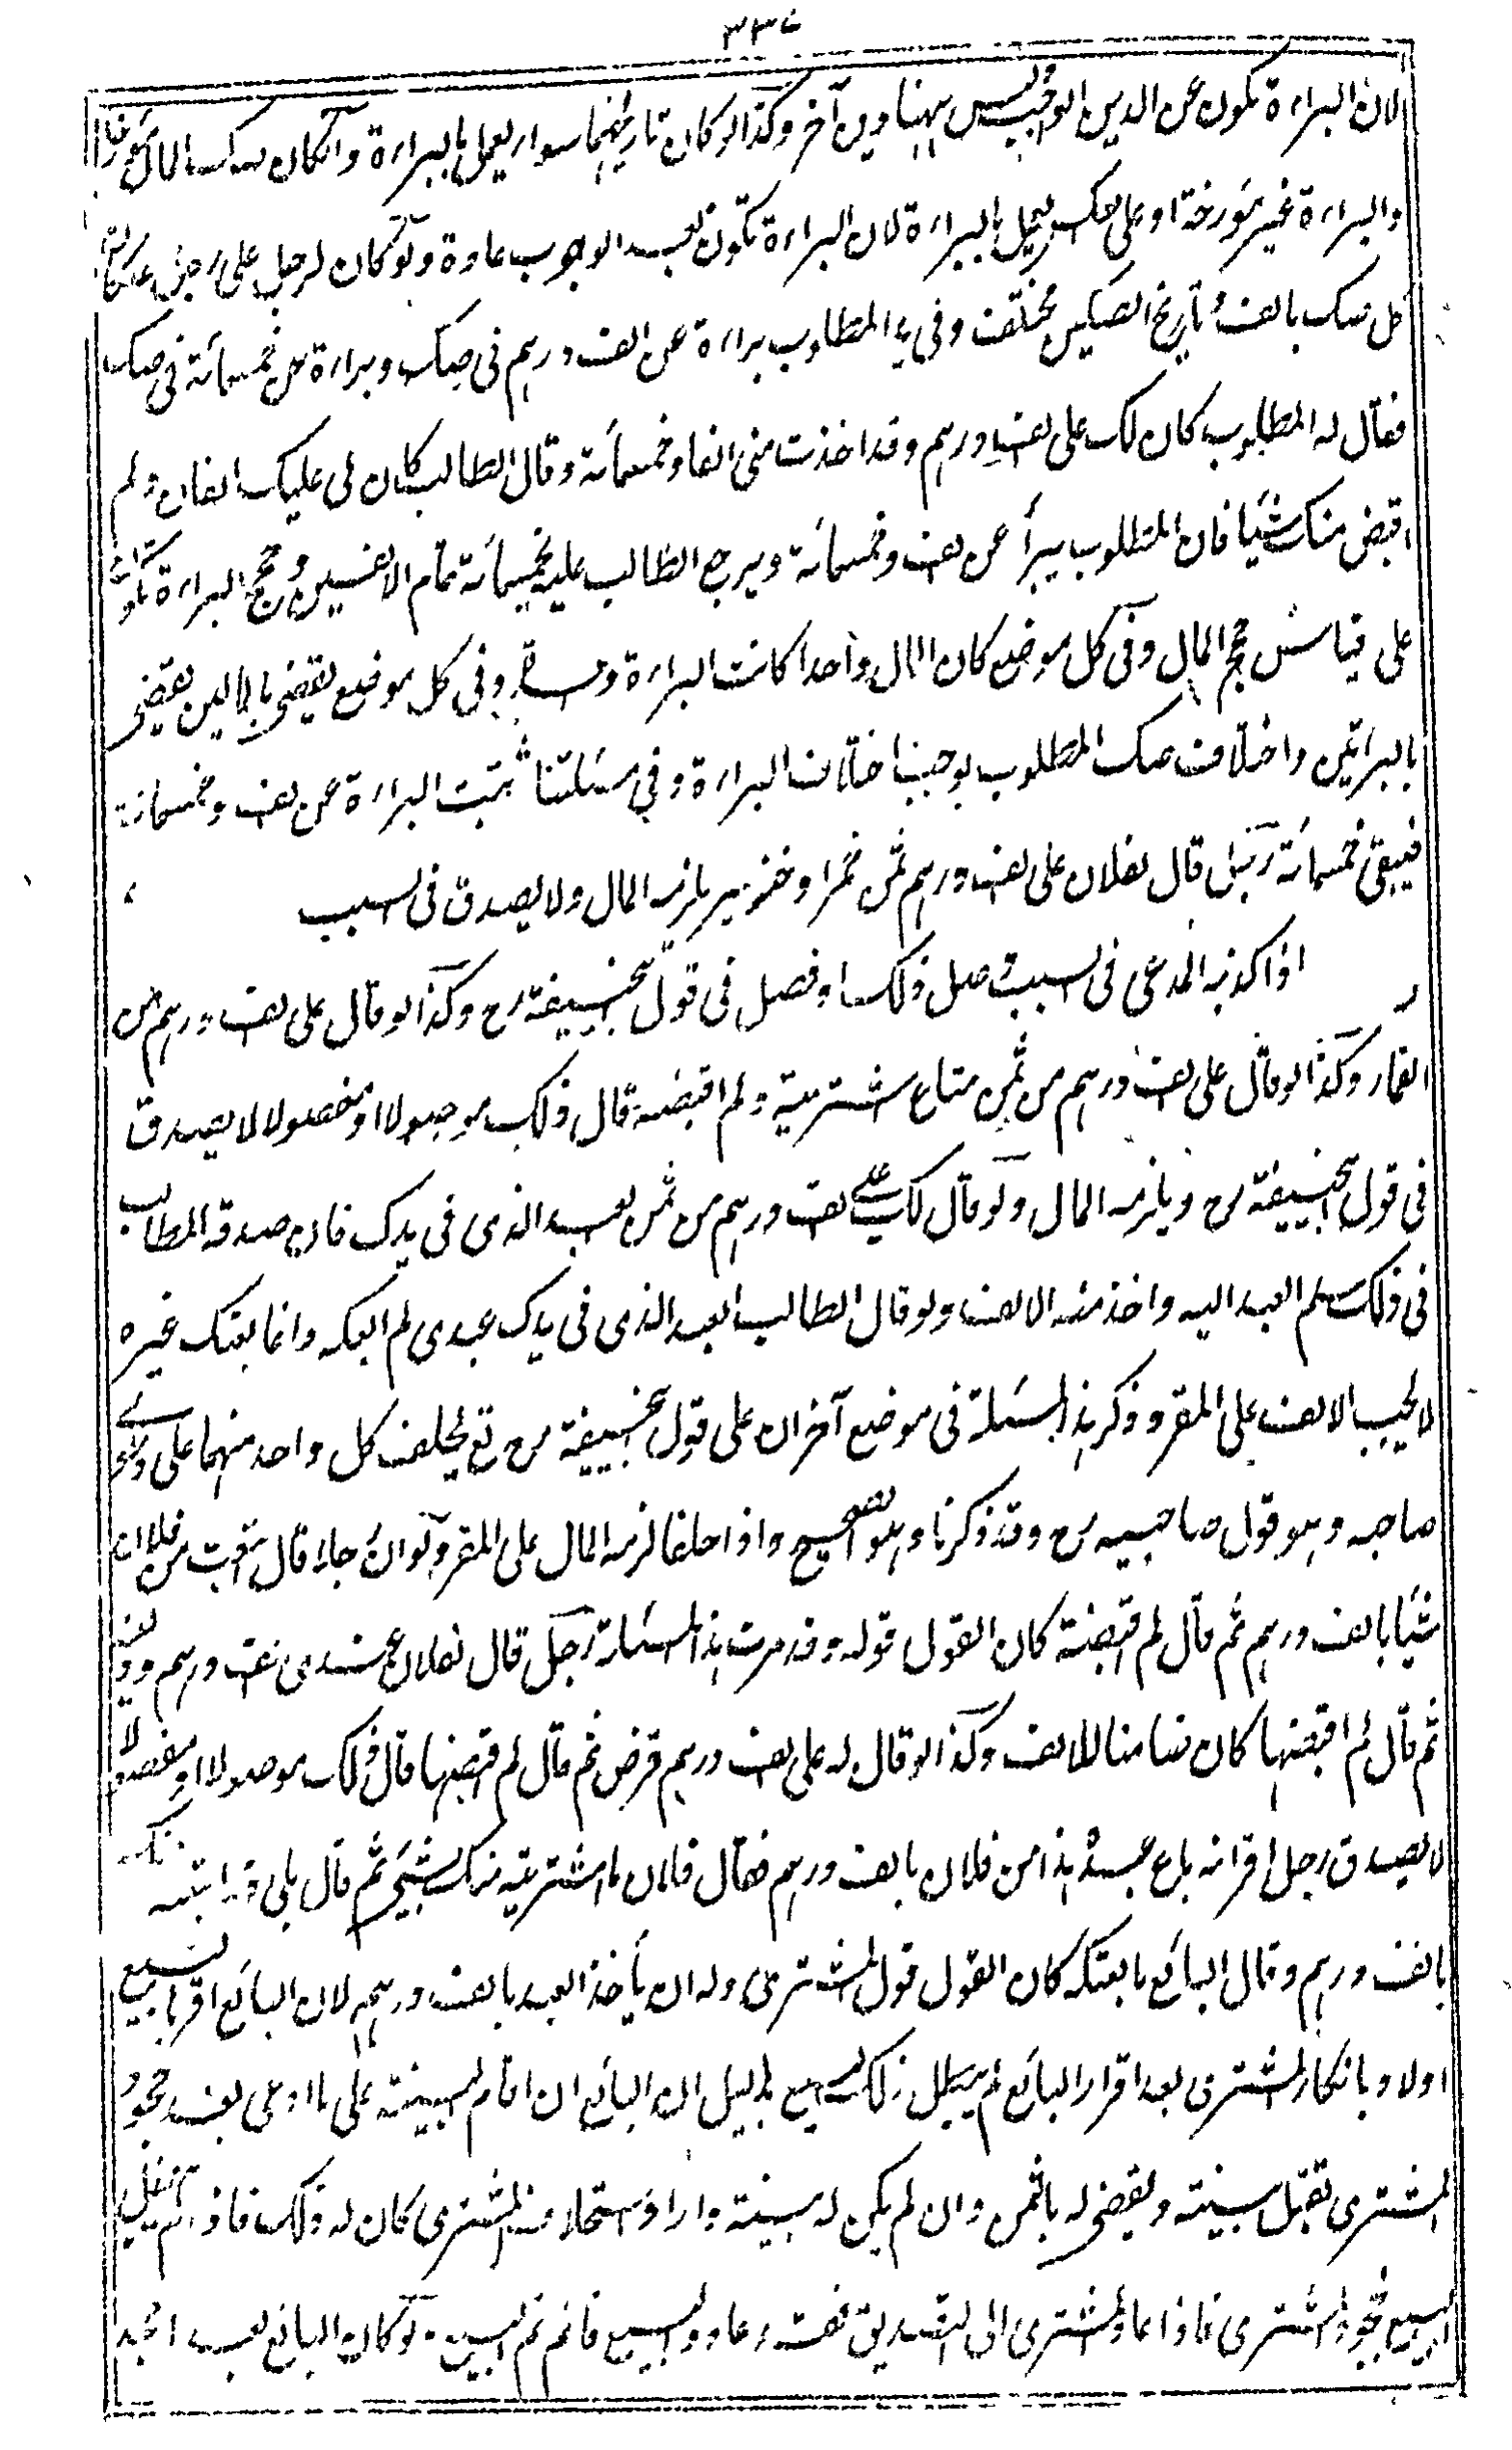 ٣٣٧
لان البراءة تكون عن الدين الواجب وليس ههنا دين آخر وكذا لو كان تاريخهما سواء يعمل بالبراءة وان كان صك المال مؤرخا
والبراءة غير مؤرخة او على العكس يعمل بالبراءة لان البراءة تكون بعد الوجوب عادة ولو كان لرجل على رجل صكان
كل صك بالف وتاريخ الصكين مختلف وفي يد المطلوب براءة عن الف درهم في صك وبراءة عن خمسمائة في صك
فقال له المطلوب كان لك على الف درهم وقد اخذت مني الفا وخمسمائة وقال الطالب كان لي عليك الفان ولم
اقبض منك شيئا فان المطلوب يبرأ عن الف وخمسمائة ويرجع الطالب عليه بخمسمائة تمام الالفين وحجج البراءة تكون
على قياس حجج المال وفي كل موضع كان المال واحدا كانت البراءة واحدة وفي كل موضع يقضى بالمالين يقضى
بالبراءتين واختلاف صك المطلوب يوجب اختلاف البراءة وفي مسئلتنا ثبتت البراءة عن الف وخمسمائة
فيبقى خمسمائة رجل قال لفلان على الف درهم ثمن خمر او خنزير يلزمه المال ولا يصدق في السبب
اذا كذبه المدعي في السبب وصل ذلك او فصل في قول ابي حنيفة رح وكذا لو قال على الف درهم من
القمار وكذا لو قال على الف درهم من ثمن متاع اشتريته ولم اقبضه قال ذلك موصولا او مفصولا لا يصدق
في قول ابي حنيفة رح ويلزمه المال ولو قال لك علي الف درهم من ثمن العبد الذي في يدك فان صدقه الطالب
في ذلك سلم العبد اليه واخذ منه الالف ولو قال الطالب العبد الذي في يدك عبدي لم ابعكه وانما بعتك غيره
لا يجب الالف على المقر وذكر هذه المسئلة في موضع آخر ان على قول ابي حنيفة رح تع يحلف كل واحد منهما على دعوى
صاحبه وهو قول صاحبيه رح وقد ذكرنا وهو الصحيح واذا حلفا لزمه المال على المقر ولو ان رجلا قال اشتريت من فلان
شيئا بالف درهم ثم قال لم اقبضه كان القول قوله وقد مرت هذه المسئلة رجل قال لفلان عندي الف درهم وديعة
ثم قال لم اقبضها كان ضامنا للالف وكذا لو قال له على الف درهم قرض ثم قال لم اقبضها قال ذلك موصولا او مفصولا
لا يصدق رجل اقر انه باع عبده هذا من فلان بالف درهم فقال فلان ما اشتريته منك بشيء ثم قال بلى قد ابتعته منك
بالف درهم وقال البائع ما بعتكه كان القول قول المشتري وله ان يأخذ العبد بالف درهم لان البائع اقر بالبيع
اولا وبانكار المشتري بعد اقرار البائع لم يبطل ذلك البيع بدليل ان البائع ان اقام البينة على ما ادعى بعد جحود
المشتري تقبل بينته ويقضى له بالثمن وان لم يكن له بينة واراد استحلاف المشتري كان له ذلك فاذا لم يبطل
البيع بجحود المشتري فاذا عاد المشتري الى التصديق فقد عاد والبيع قائم ثم البيع ولو كان البائع بعد